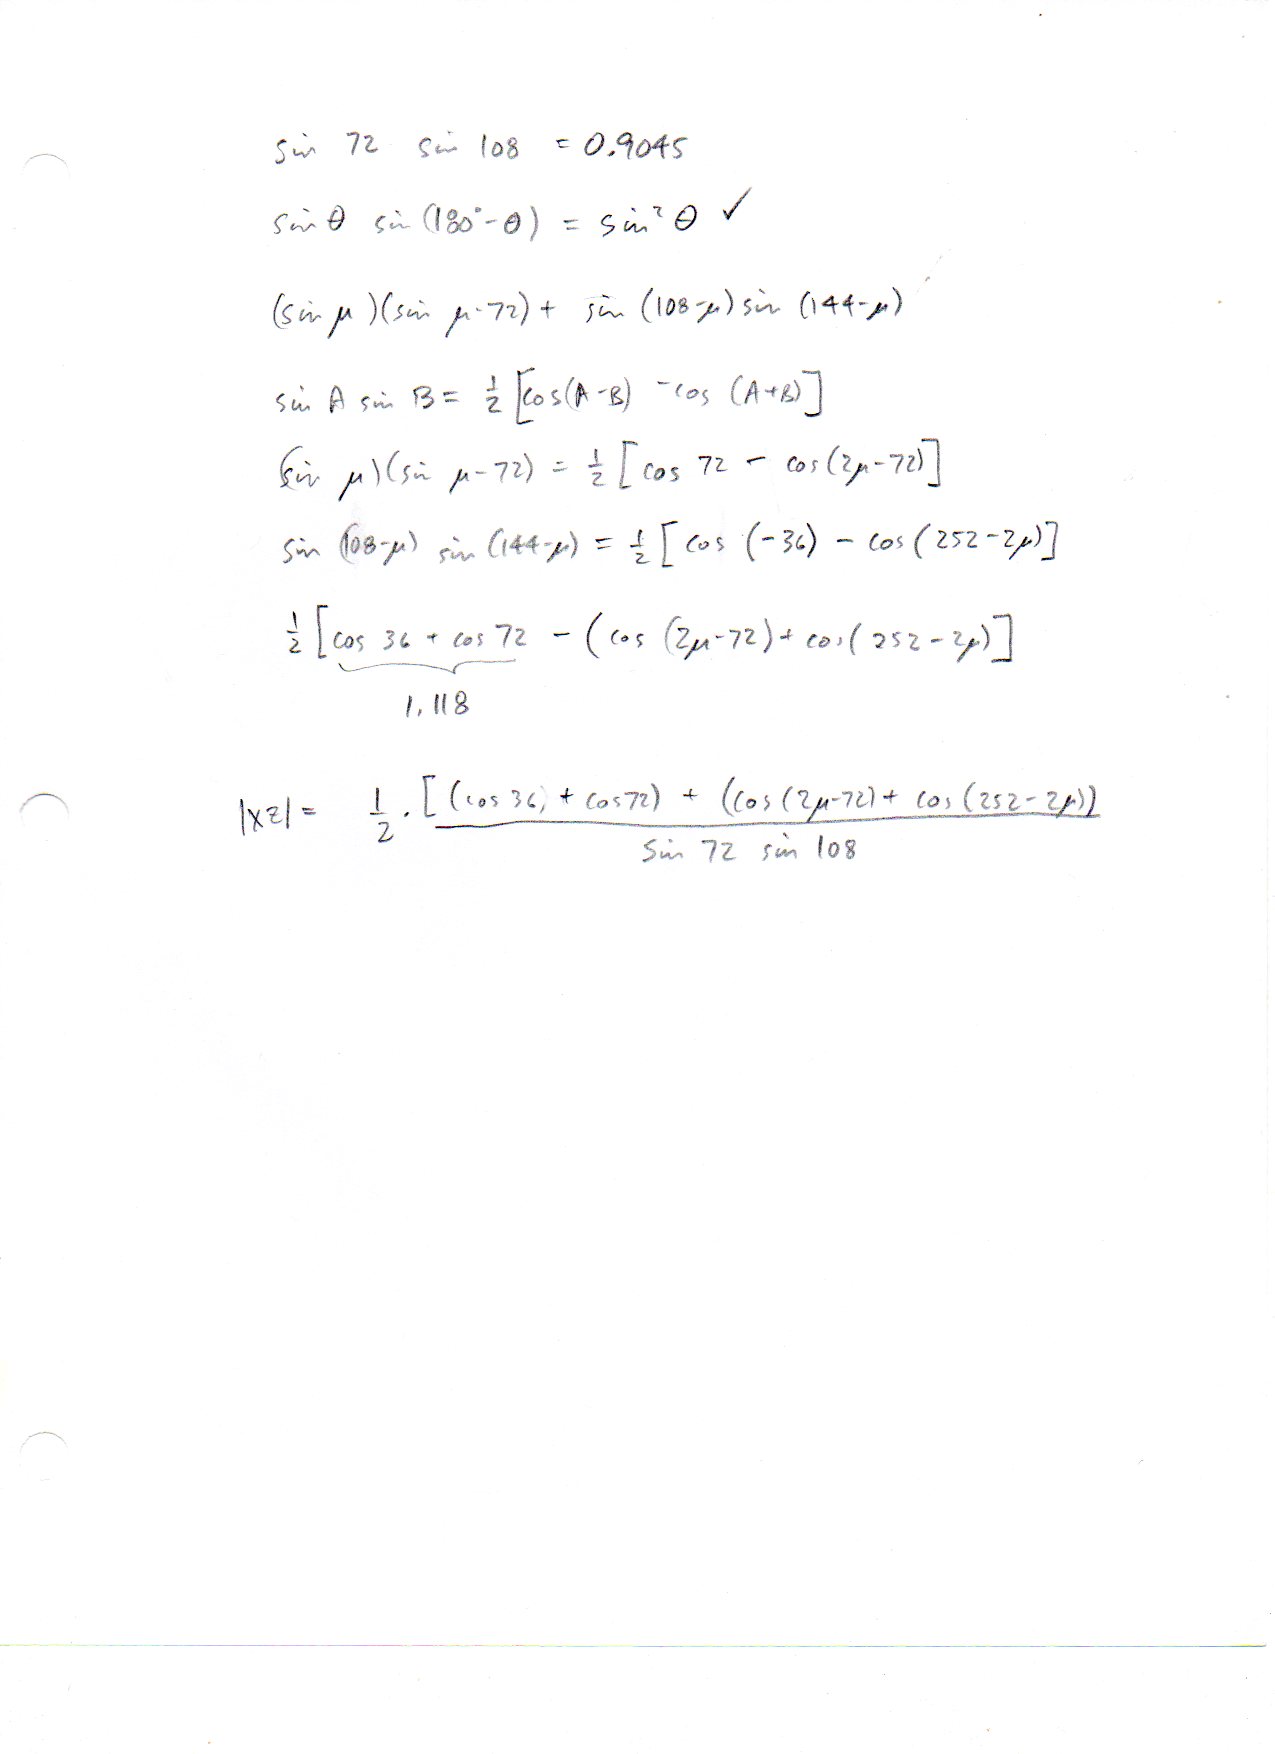 sin 72 sin 108 = 0.9045
sin θ sin (180° - θ) = sin² θ ✓
(sin μ)(sin μ-72) + sin (108-μ) sin (144-μ)
sin A sin B = 1/2 [cos(A-B) - cos (A+B)]
(sin μ)(sin μ-72) = 1/2 [cos 72 - cos(2μ-72)]
sin (108-μ) sin (144-μ) = 1/2 [cos (-36) - cos(252-2μ)]
1/2 [cos 36 + cos 72 - (cos (2μ-72) + cos(252-2μ)]
1.118
|XZ| = 1/2 · [(cos 36) + cos 72) + (cos (2μ-72) + cos (252-2μ))
sin 72 sin 108